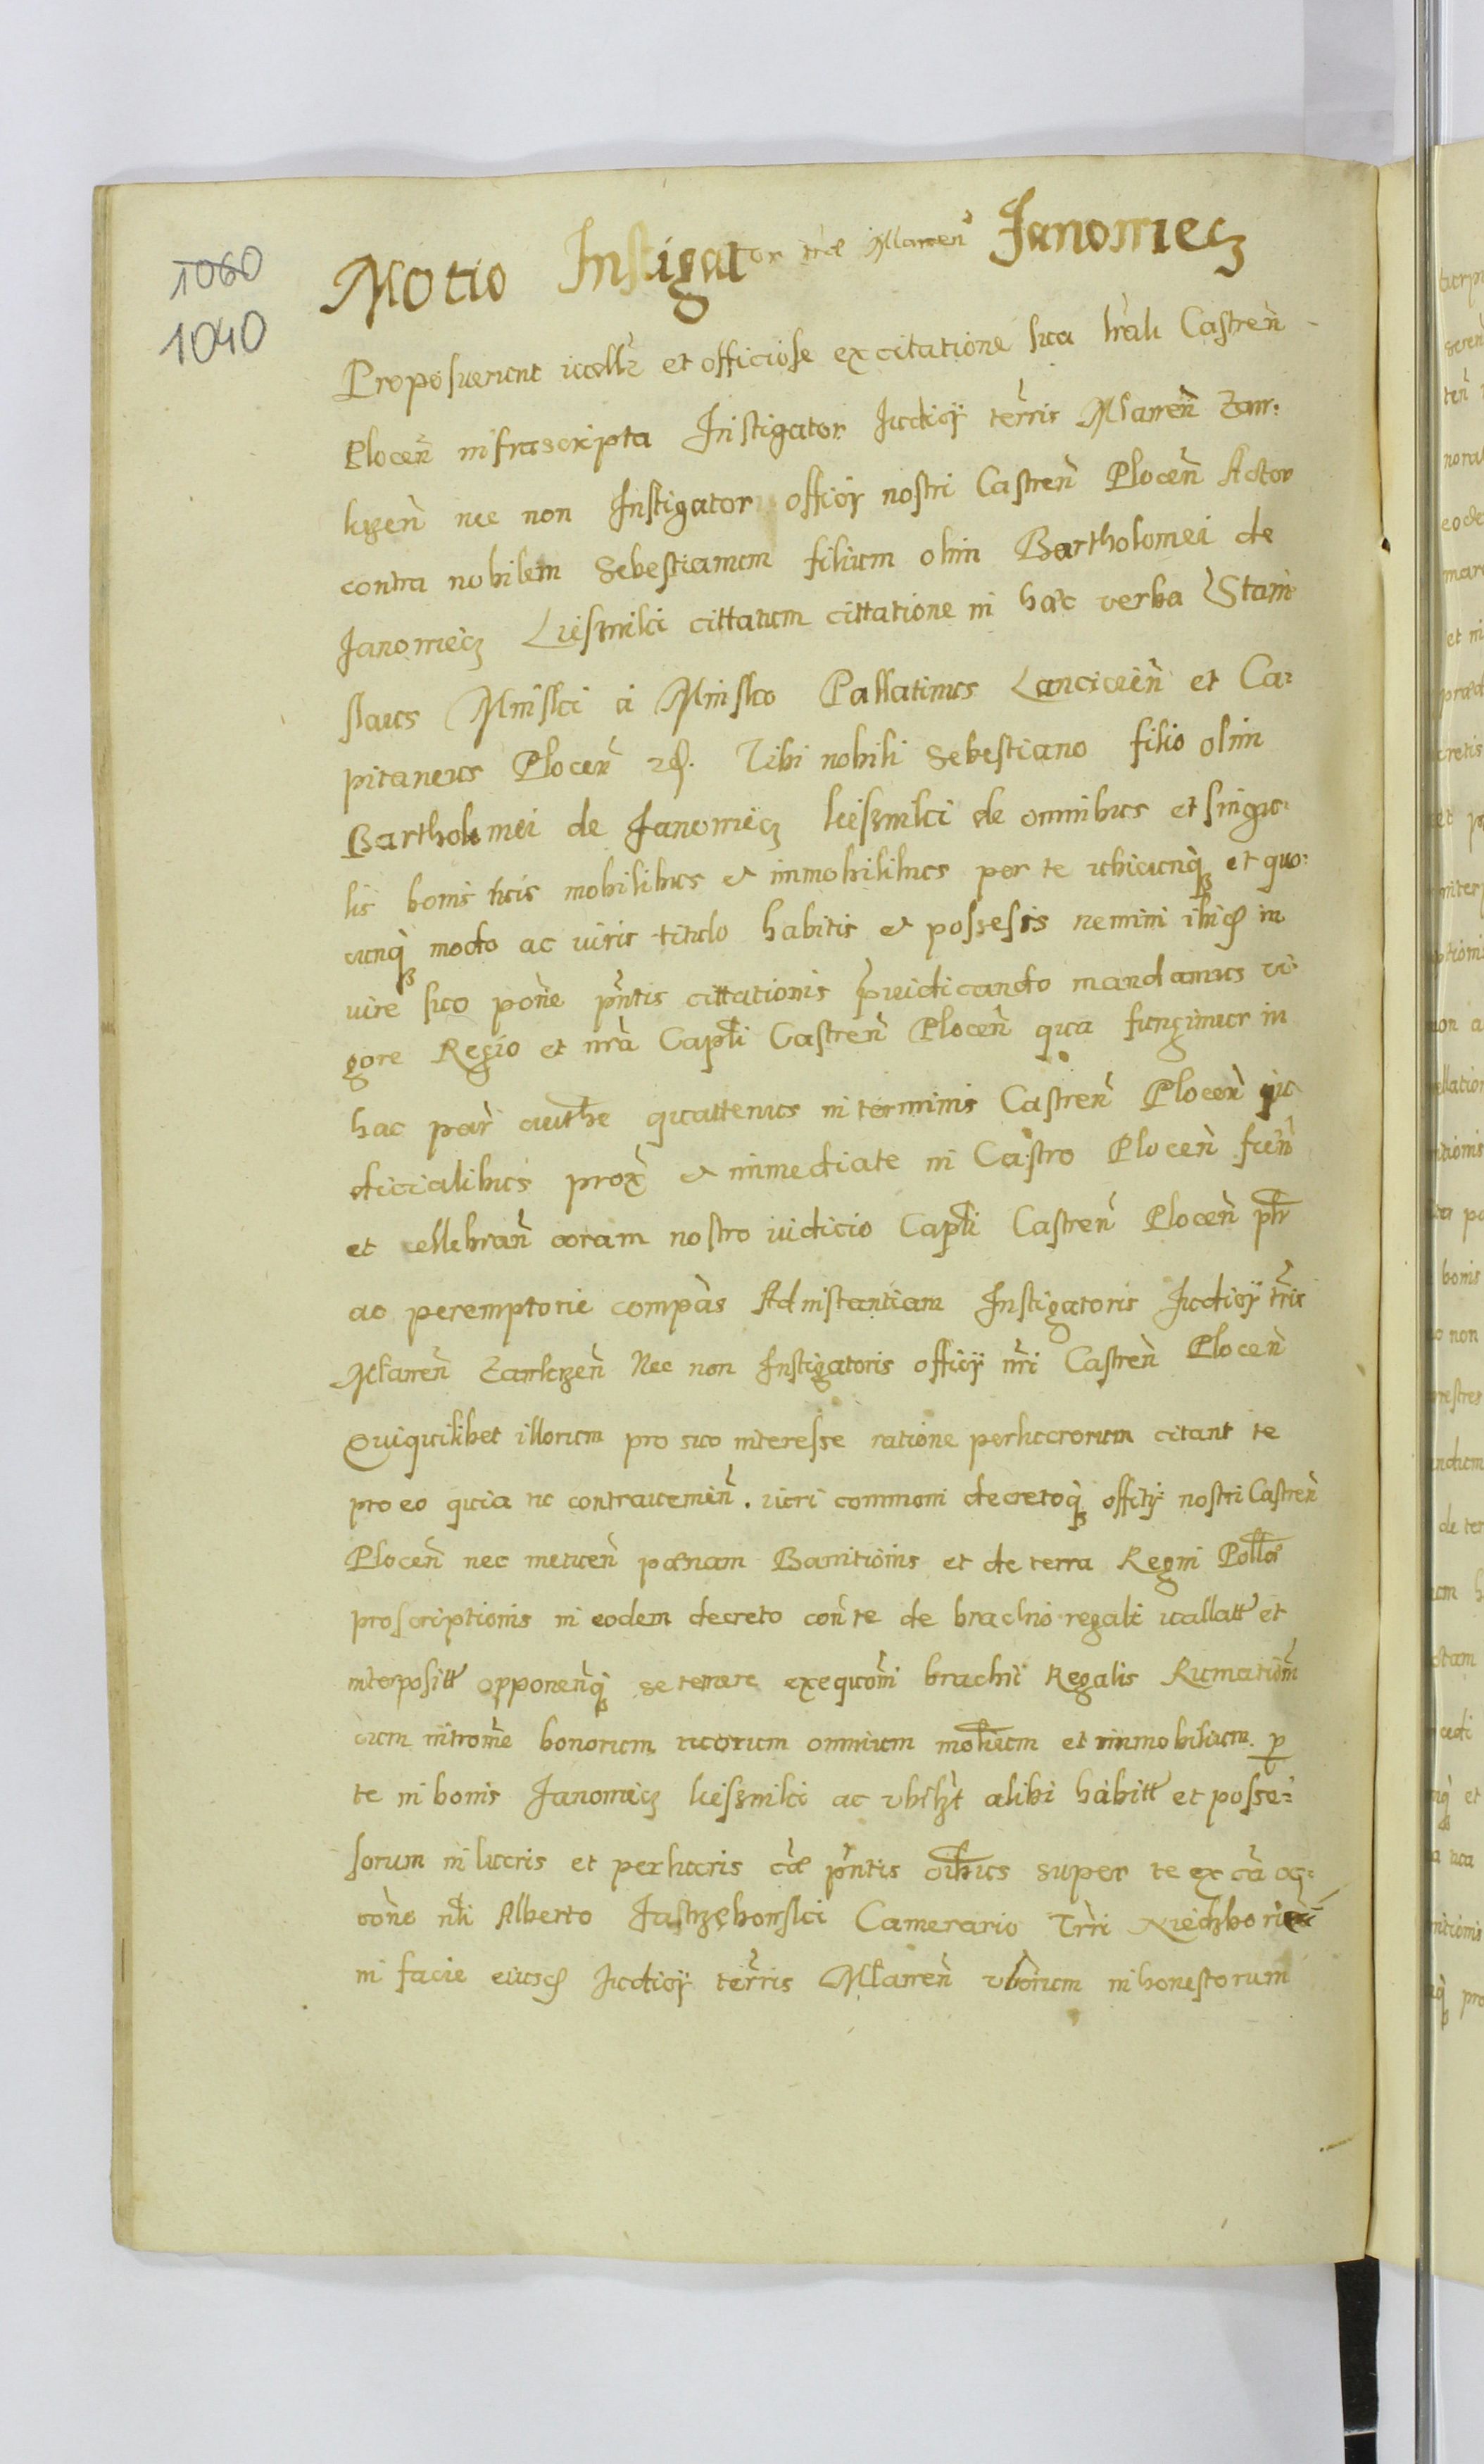 1060
1040
Motio Instigator trae Mlawen Janowiecz
Proposuerunt et officiose ex citatione sua lrali Castren
Plocen infrascripta Instigator Judicy terris Mlawen Zaw:
krzen nec non Instigator officy nostri Castren Plocen Actor
contra nobilem Sebestianum filium olim Bartholomei de
Janowiecz Liesznilci cittatum cittatione in haec verba Stani
slaus Minslci a Minslco Pallatinus Lancicien et Ca:
pitaneus Plocen Tibi nobili Sebestiano filio olim
Bartholomei de Janowiecz liesznilci de omnibus et singu:
lis bonis tuis mobilibus et immobilibus per te ubicunq et quo:
cunq modo ac iuris titulo habitis et possessis nemini in
iure suo pone pntis cittationis mandamus vi
gore Regio et nra Capti Castren Plocen qua fungimur in
hac par authe quattenus in terminis Castren Plocen iu
dicialibus prox et immediate in Castro Plocen fien
et cellebran coram nostro iudicio Capti Castren Plocen ptr
ac peremptorie compas Ad instantiam Instigatoris Judicy tris
Mlawen Zawkrzen Nec non Instigatoris officy nri Castren Plocen
Quiquilibet illorum pro suo interesse ratione perlucrorum citant te
pro eo quia tu contrauenien. iuri communi decretoq offity nostri Castren
Plocen nec metuen paenam Bannitionis et de terra Regni Pollae
proscriptionis in eodem decreto con te de brachio regali vallatt et
interpositt opponenq se temere exequoni brachii Regalis Rumationi
cum introme bonorum tuorum omnium mobilium et immobilium p
te in bonis Janowiecz liesznilci ac vbilzt alibi habitt et posse:
sorum in lucris et perlucris pntis super te ex ca ac:
tone nli Alberto Jastrzębowslci Camerario Trri
in facie eiusd Judicy terris Mlawen vborum inhonestorum